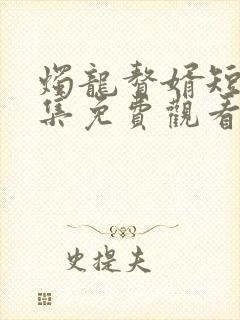 燭龍贅婿短
集免費觀看
史提夫